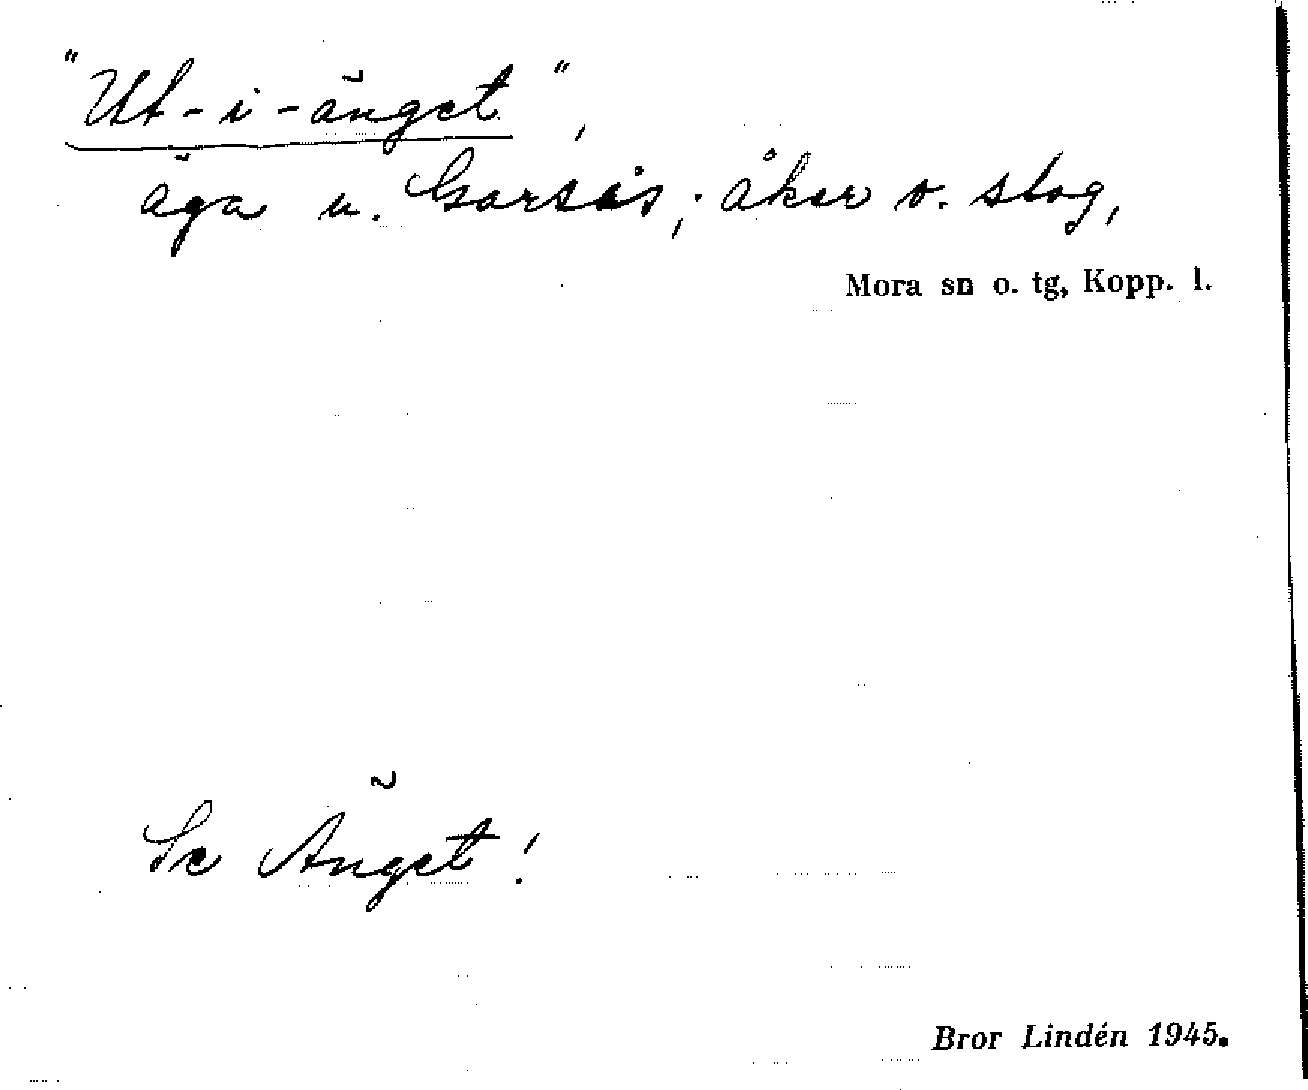 "Ut-i-änget",
äga u. Garsås; åker o. slog,
Mora sn o. tg, Kopp. l.
Se Änget!
Bror Lindén 1945.